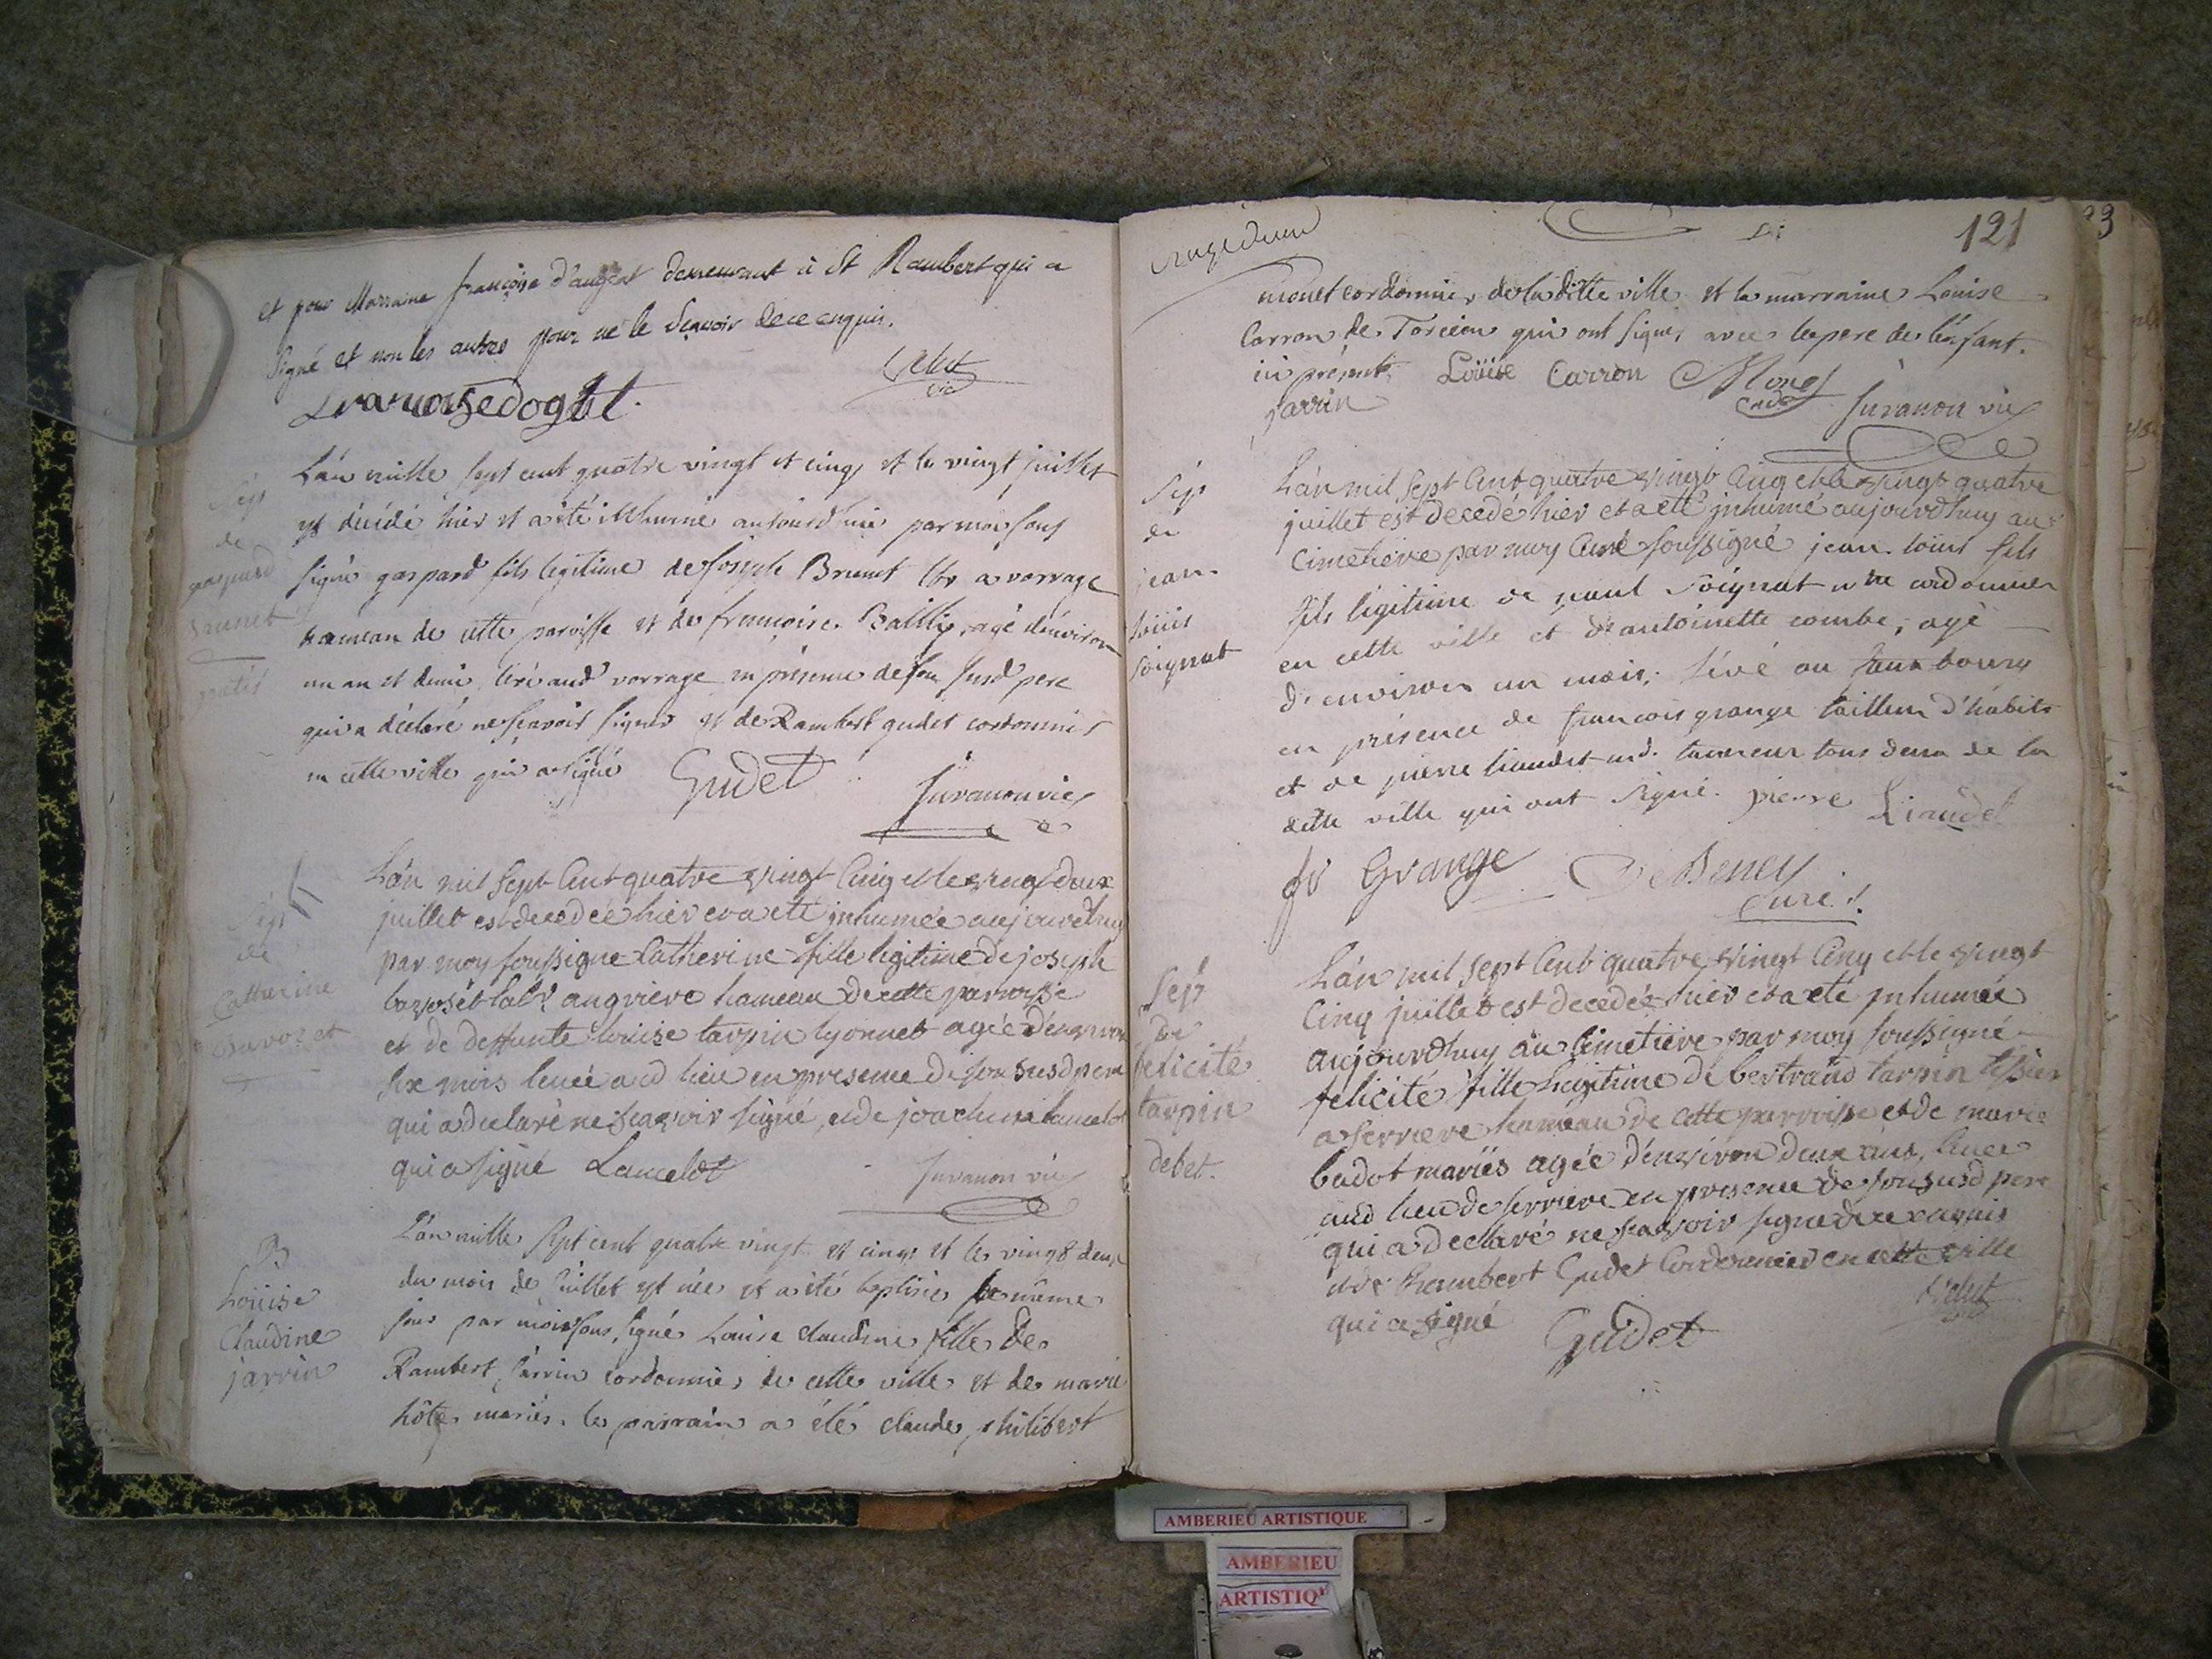 et pour Marraine françoise d'augeat demeurant à St Rambert qui a
signé et non les autres pour ne le sçavoir de ce enquis.
francoisedoget
Sep
de
gaspard
Brunet
L'an mille sept cent quatre vingt et cinq et le vingt juillet
est décédé hier et a été inhumé aujourd'hui par moi sous
signé gaspard fils légitime de joseph Brunet lbr a vorrage
hameau de cette paroisse et de françoise Bailly, agé d'environ
un an et demi levé aud vorrage en présence de son susd pere
qui a déclaré ne sçavoir signer et de Rambert gudet cordonnier
en cette ville qui a signé Gudet
Juvanon vic
Sep
de
Catherine
Bavozet
L'an mil sept Cent quatre vingt Cinq et le vingt deux
juillet est decedée hier et a eté inhumée aujourd'huy
par moy soussigné Catherine fille legitime de joseph
bavoset labr augriere hameau de cette parroisse
et de deffunte louise tarpin lyonnet agée d'environ
six mois levée aud lieu en presence de son susd pere
qui a declaré ne sçavoir signé, et de joachim lancelot
qui a signé Lancelot Juvanon vic
B
Loüise
Claudine
jarrin
L'an mille sept cent quatre vingt et cinq et le vingt deux
du mois de Juillet est née et a été baptisée le même
jour par moi sous signé Louise claudine fille de
Rambert Jarrin cordonnier de cette ville et de marie
hôte mariés. le parrain a été claude philibert
121
monet cordonnier de la ditte ville et la marraine Louise
Carron de Torcieu qui ont signé, avec le pere de l'enfant.
ici présent, Loüise Carron Monet
jarrin Juvanon vic
Sep
de
jean
loüis
soignat
L'an mil sept Cent quatre vingt Cinq et le vingt quatre
juillet est decedé hier et a eté inhumé aujourd'huy au
Cimetiere par moy Curé soussigné jean louis fils
fils legitime de paul soignat mtre cordonnier
en cette ville et d'antoinette combe, agé
d'environ un mois, levé au faux bourg
en présence de francois grange tailleur d'habits
et de pierre liaudet md. tanneur tous deux de la
dette ville qui ont signé. pierre Liaudet
fr Grange DeBeney
Curé.
Sep
de
felicité
tarpin
debet.
L'an mil sept Cent quatre vingt Cinq et le vingt
Cinq juillet est decedée hier et a eté inhumée
aujourd'huy au Cimetiere par moy soussigné
felicité fille legitime de bertrand tarpin tissier
a serriere hameau de cette parroisse et de marie
badot mariés agée d'environ deux ans, levée
aud lieu de serriere en presence de son susd pere
qui a declaré ne sçavoir signe de ce enquis
et de Rambert Gudet Cordonnier en cette ville
qui a signé Gudet
AMBERIEU ARTISTIQUE
AMBERIEU
ARTISTIQ